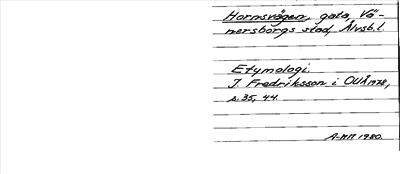 Hornsvägen, gata, Vä-
nersborgs stad, Älvsb.l.
Etymologi.
I. Fredriksson i OUÅ 1978,
s. 35, 44.
A-MM 1980.